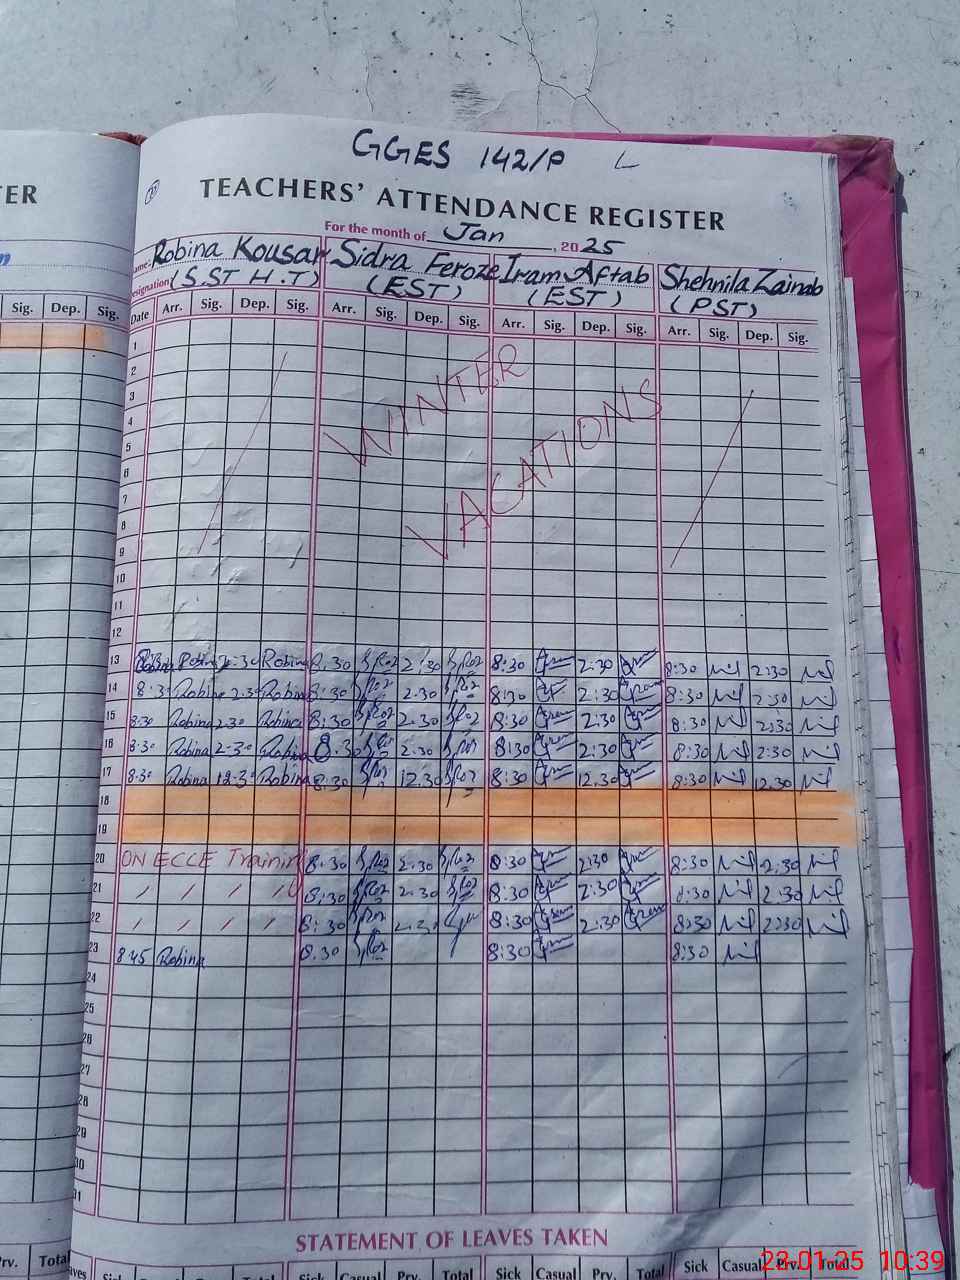 GGES 142/P L
27
TEACHERS' ATTENDANCE REGISTER
TER
For the month of Jan, 2025
Name: Robina Kousar Sidra Feroze Iram Aftab Shehnila Zainab
Designation (S.ST H.T) (EST) (EST) (PST)
Sig. Dep. Sig.
Date Arr. Sig. Dep. Sig. Arr. Sig. Dep. Sig. Arr. Sig. Dep. Sig. Arr. Sig. Dep. Sig.
1
2
3
4
5
6
7
8
9
10
11
12
WINTER
VACATIONS
13 Robina 2:30 Robina 8:30 2:30 8:30 2:30 8:30 2:30
14 8:3 Robina 2:3 Robina 8:30 2:30 8:30 2:30 8:30 2:30
15 8:30 Robina 2:30 Robina 8:30 2:30 8:30 2:30 8:30 2:30
16 8:30 Robina 2:30 Robina 8:30 2:30 8:30 2:30 8:30 2:30
17 8:30 Robina 12:30 Robina 8:30 12:30 8:30 12:30 8:30 12:30
18
19
20 ON ECCE Training 8:30 2:30 8:30 2:30 8:30 2:30
21 / / / / 8:30 2:30 8:30 2:30 8:30 2:30
22 / / / / 8:30 2:30 8:30 2:30 8:30 2:30
23 8:45 Robina 8:30 8:30 8:30
24
25
26
27
28
29
30
31
STATEMENT OF LEAVES TAKEN
Prv. Total Leaves Sick Casual Prv. Total Sick Casual Prv. Total Sick Casual Prv. Total Sick Casual Prv. Total
23.01.25 10:39